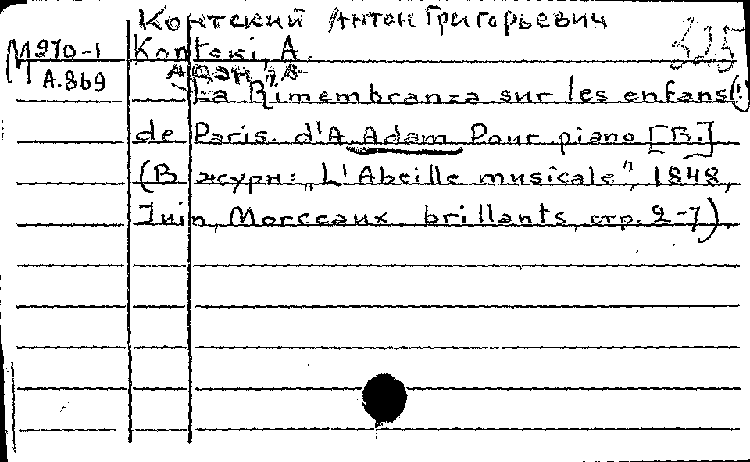 Контский Антон Григорьевич
325
М 270-1 Kontski, A.
А.869 Адан, А
La Rimembranza sur les enfans(!)
de Paris. d'A. Adam. Pour piano [В.]
(В журн: „L'Abeille musicale", 1848,
Juin, Morceaux brillants, стр. 2-7).